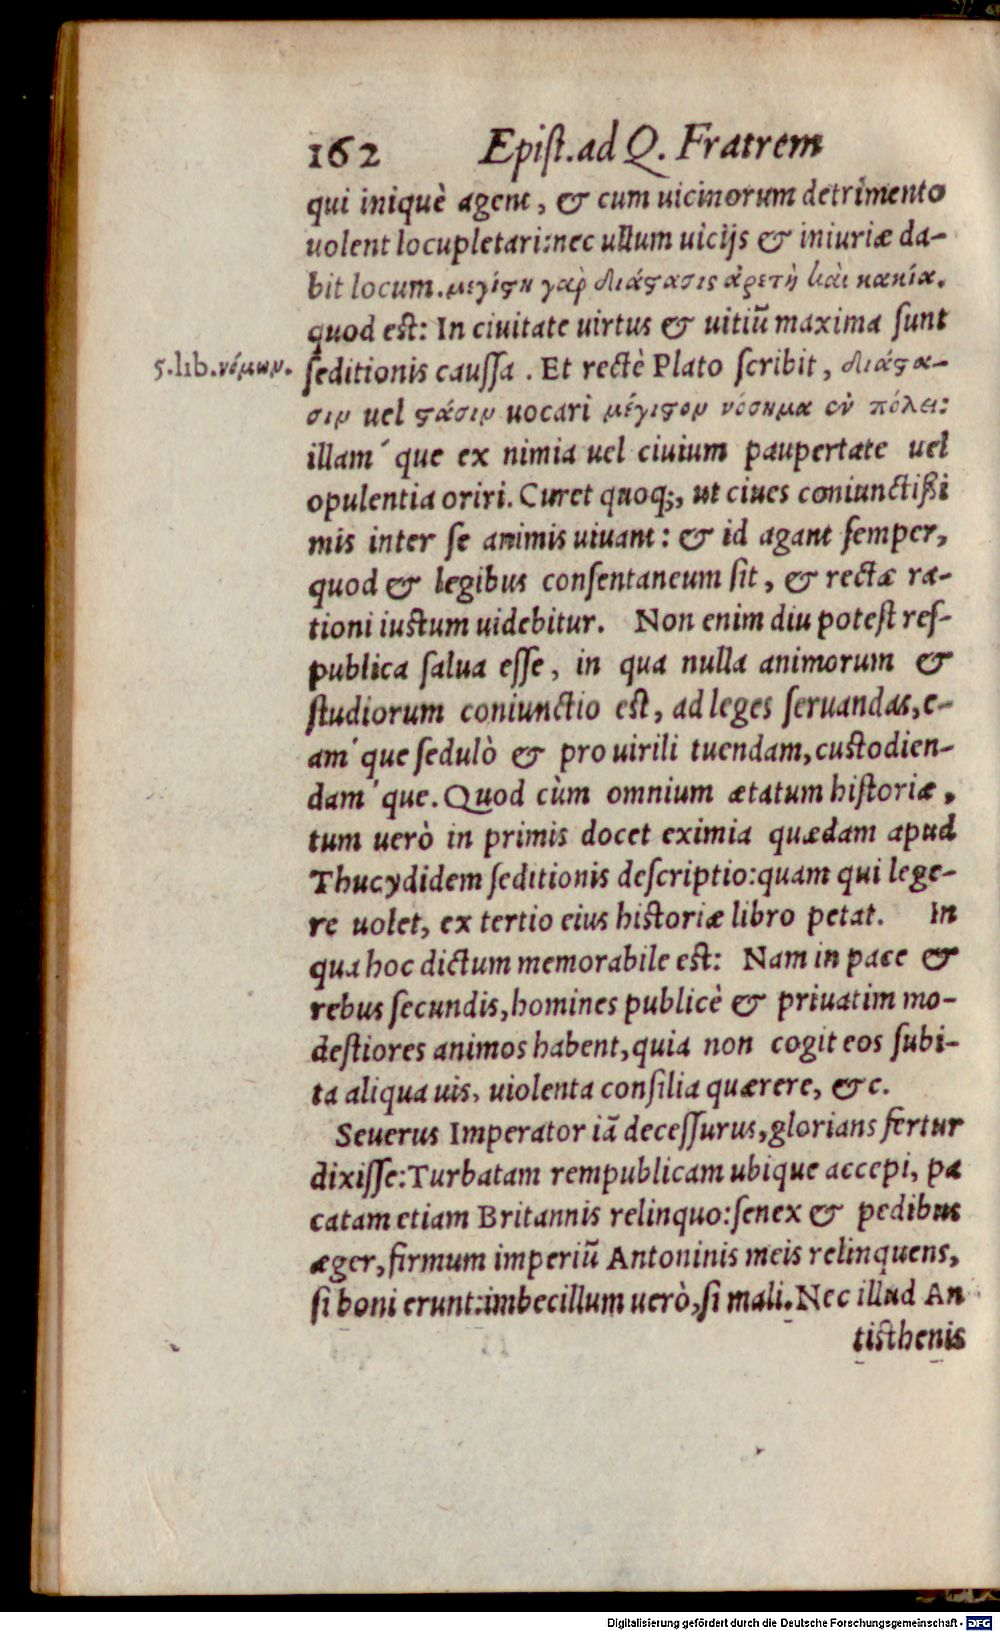 162 Epiſt. ad Q. Fratrem
qui iniquè agent, & cum uicinorum detrimento
uolent locupletari: nec ullum uicijs & iniuriæ da-
bit locum. μεγίςη γαρ̀ διάςασις ἀρετὴ καὶ κακία.
quod eſt: In ciuitate uirtus & uitiũ maxima ſunt
5. lib. νόμων.
ſeditionis cauſſa. Et rectè Plato ſcribit, διάςα-
σιν uel ςάσιν uocari μέγιςον νόσημα ἐν πόλει:
illam´que ex nimia uel ciuium paupertate uel
opulentia oriri. Curet quoq;, ut ciues coniunctißi
mis inter ſe animis uiuant: & id agant ſemper,
quod & legibus conſentaneum ſit, & rectæ ra-
tioni iustum uidebitur. Non enim diu poteſt reſ-
publica ſalua eſſe, in qua nulla animorum &
ſtudiorum coniunctio eſt, ad leges ſeruandas, e-
am´que ſedulò & pro uirili tuendam, cuſtodien-
dam´que. Quod cùm omnium ætatum hiſtoriæ,
tum uerò in primis docet eximia quædam apud
Thucydidem ſeditionis deſcriptio: quam qui lege-
re uolet, ex tertio eius hiſtoriæ libro petat. In
qua hoc dictum memorabile eſt: Nam in pace &
rebus ſecundis, homines publicè & priuatim mo-
deſtiores animos habent, quia non cogit eos ſubi-
ta aliqua uis, uiolenta conſilia quærere, &c.
Seuerus Imperator iã deceſſurus, glorians fertur
dixiſſe: Turbatam rempublicam ubique accepi, pa
catam etiam Britannis relinquo: ſenex & pedibus
æger, firmum imperiũ Antoninis meis relinquens,
ſi boni erunt: imbecillum uerò, ſi mali. Nec illud An
tiſthenis
Digitalisierung gefördert durch die Deutsche Forschungsgemeinschaft - DFG